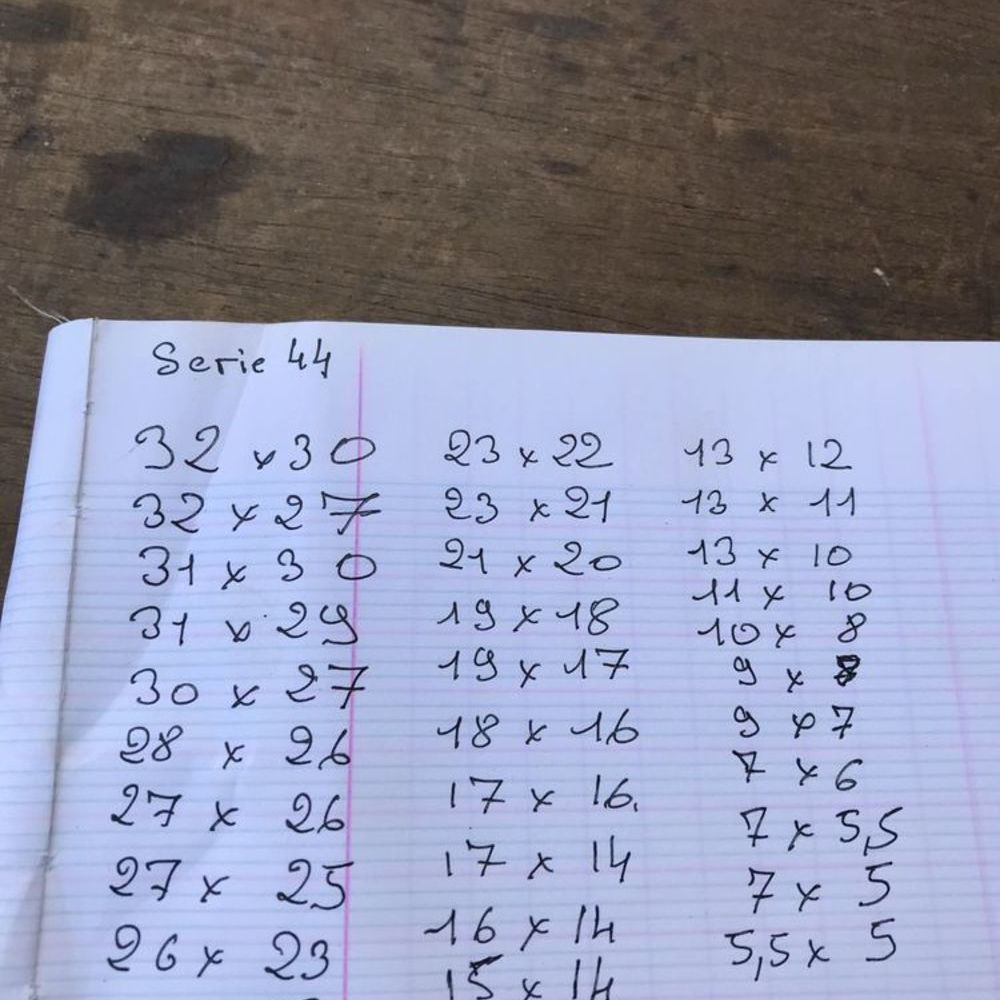 Serie 44
32 x 30
32 x 27
31 x 30
31 x 29
30 x 27
28 x 26
27 x 26
27 x 25
26 x 23
23 x 22
23 x 21
21 x 20
19 x 18
19 x 17
18 x 16
17 x 16.
17 x 14
16 x 14
15 x 14
13 x 12
13 x 11
13 x 10
11 x 10
10 x 8
9 x 8
9 x 7
7 x 6
7 x 5,5
7 x 5
5,5 x 5